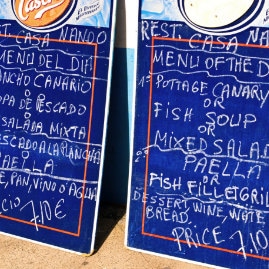 REST. CASA NANDO
MENU DEL DIA
RANCHO CANARIO
O
SOPA DE PESCADO
O
ENSALADA MIXTA
PESCADO A LA PLANCHA
PAELLA
VINO O AGUA
7,10€
REST. CASA NANDO
MENU OF THE D
1º POTTAGE CANARY
OR
FISH SOUP
OR
MIXED SALAD
PAELLA
OR
FISH FILLET GRIL
DESSERT, WINE, WATE
BREAD.
PRICE 7,10